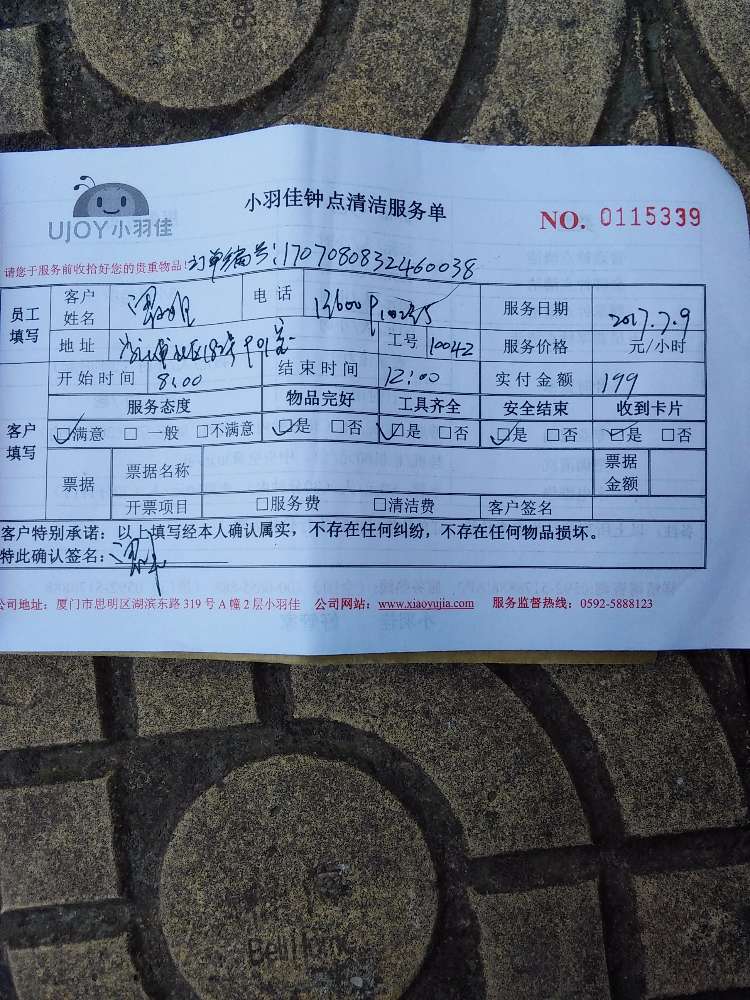 UJOY小羽佳
小羽佳钟点清洁服务单
NO. 0115339
请您于服务前收拾好您的贵重物品!
订单编号:1707080832460038
员工填写 客户姓名 电话 服务日期 2017.7.9
地址 工号 10042 服务价格 元/小时
开始时间 8:00 结束时间 12:00 实付金额 199
客户填写 服务态度 物品完好 工具齐全 安全结束 收到卡片
☑满意 □ 一般 □不满意 ☑是 □否 ☑是 □否 ☑是 □否 ☑是 □否
票据 票据名称 票据金额
开票项目 □服务费 □清洁费 客户签名
客户特别承诺:以上填写经本人确认属实,不存在任何纠纷,不存在任何物品损坏。
特此确认签名:
公司地址:厦门市思明区湖滨东路 319 号 A 幢 2 层小羽佳 公司网站:www.xiaoyujia.com 服务监督热线:0592-5888123